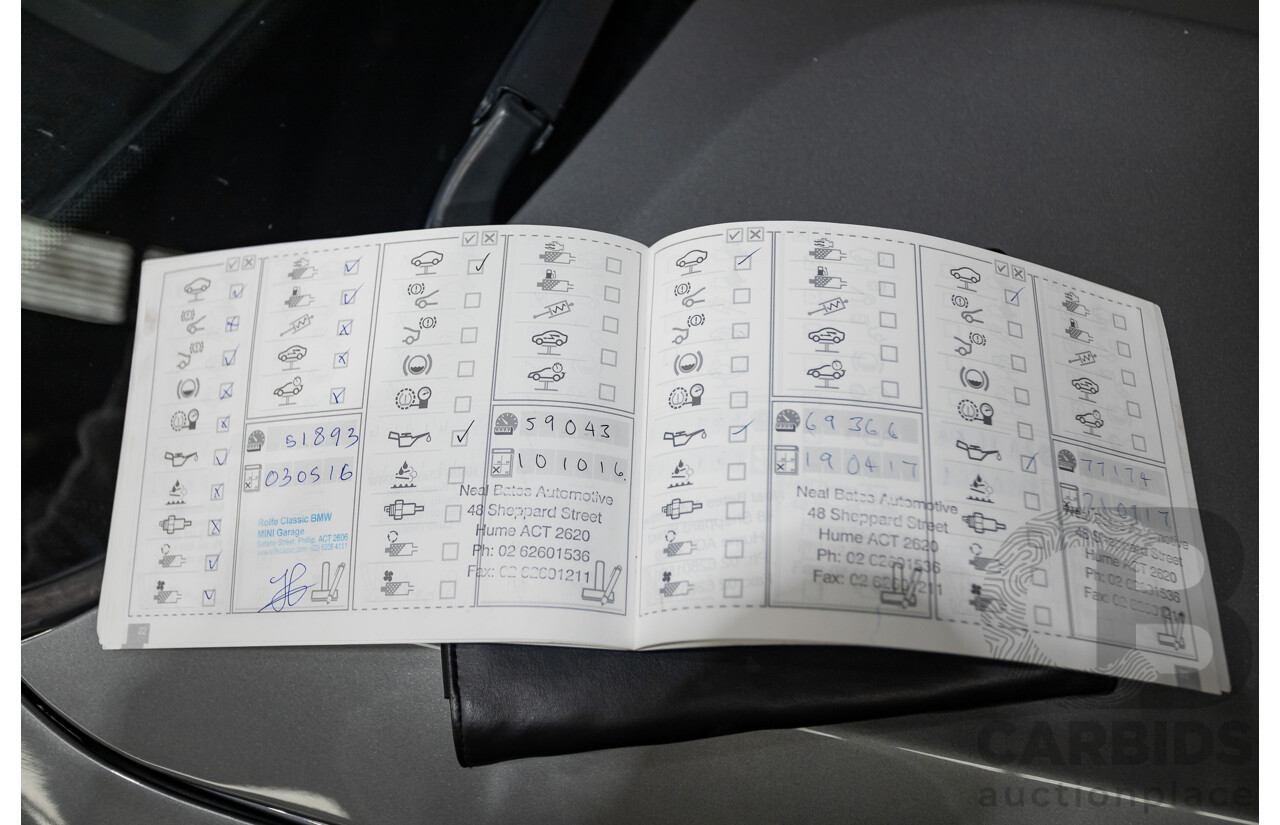 51893
030516
Rolfe Classic BMW
MINI Garage
Phillip, ACT 2606
59043
101016.
Neal Bates Automotive
48 Sheppard Street
Hume ACT 2620
Ph: 02 62601536
Fax: 02 62601211
69366
190417
Neal Bates Automotive
48 Sheppard Street
Hume ACT 2620
Ph: 02 62601536
Fax: 02 62601211
77174
Sheppard Street
Hume ACT 2620
Ph: 02 62601536
Fax: 02
CARBIDS
auctionplace